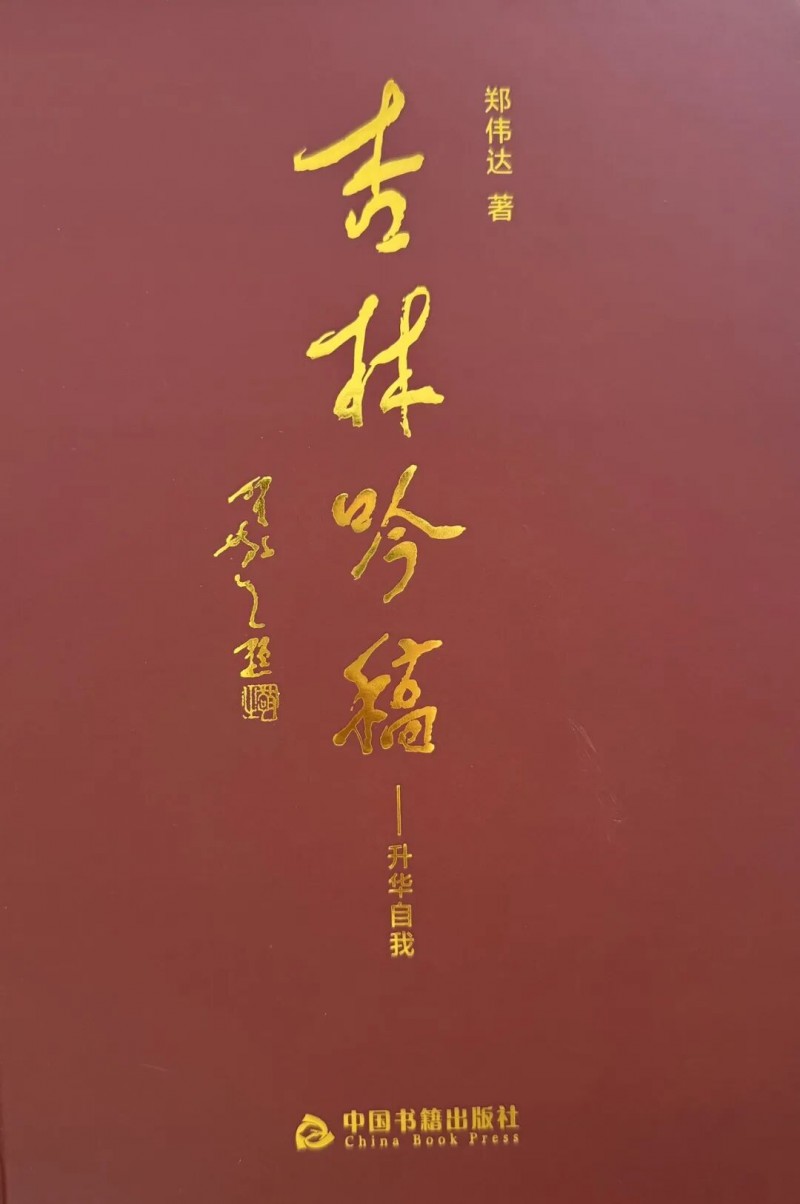 郑伟达 著
吉林吟稿
——升华自我
中国书籍出版社
China Book Press